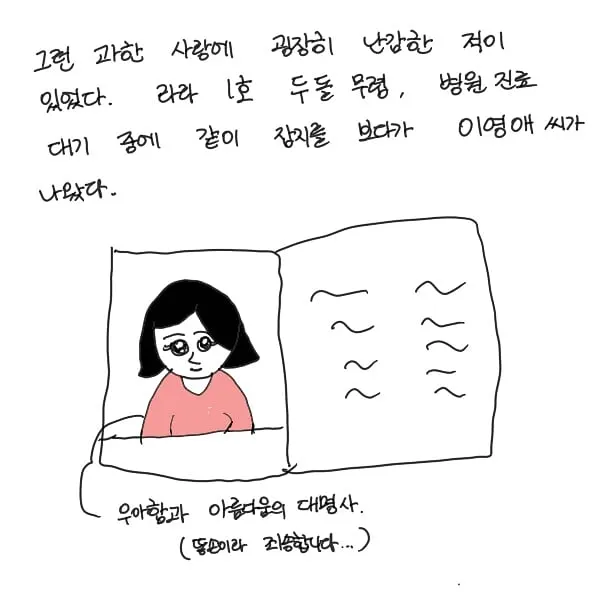 그런 과한 사랑에 굉장히 난감한 적이
있었다. 라라 1호 두돌 무렵, 병원 진료
대기 중에 같이 잡지를 보다가 이영애 씨가
나왔다.
우아함과 아름다움의 대명사.
(똥손이라 죄송합니다...)